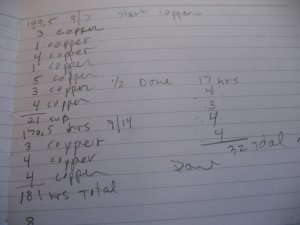 149.5 9/7 start copper
3 copper
1 copper
4 copper
1 copper
5 copper
3 copper 1/2 Done 17 hrs
4 copper 4
21 cop 3
170.5 hrs 9/14 4
3 copper 4
4 copper 32 Total
4 copper Done
181 hrs Total
8